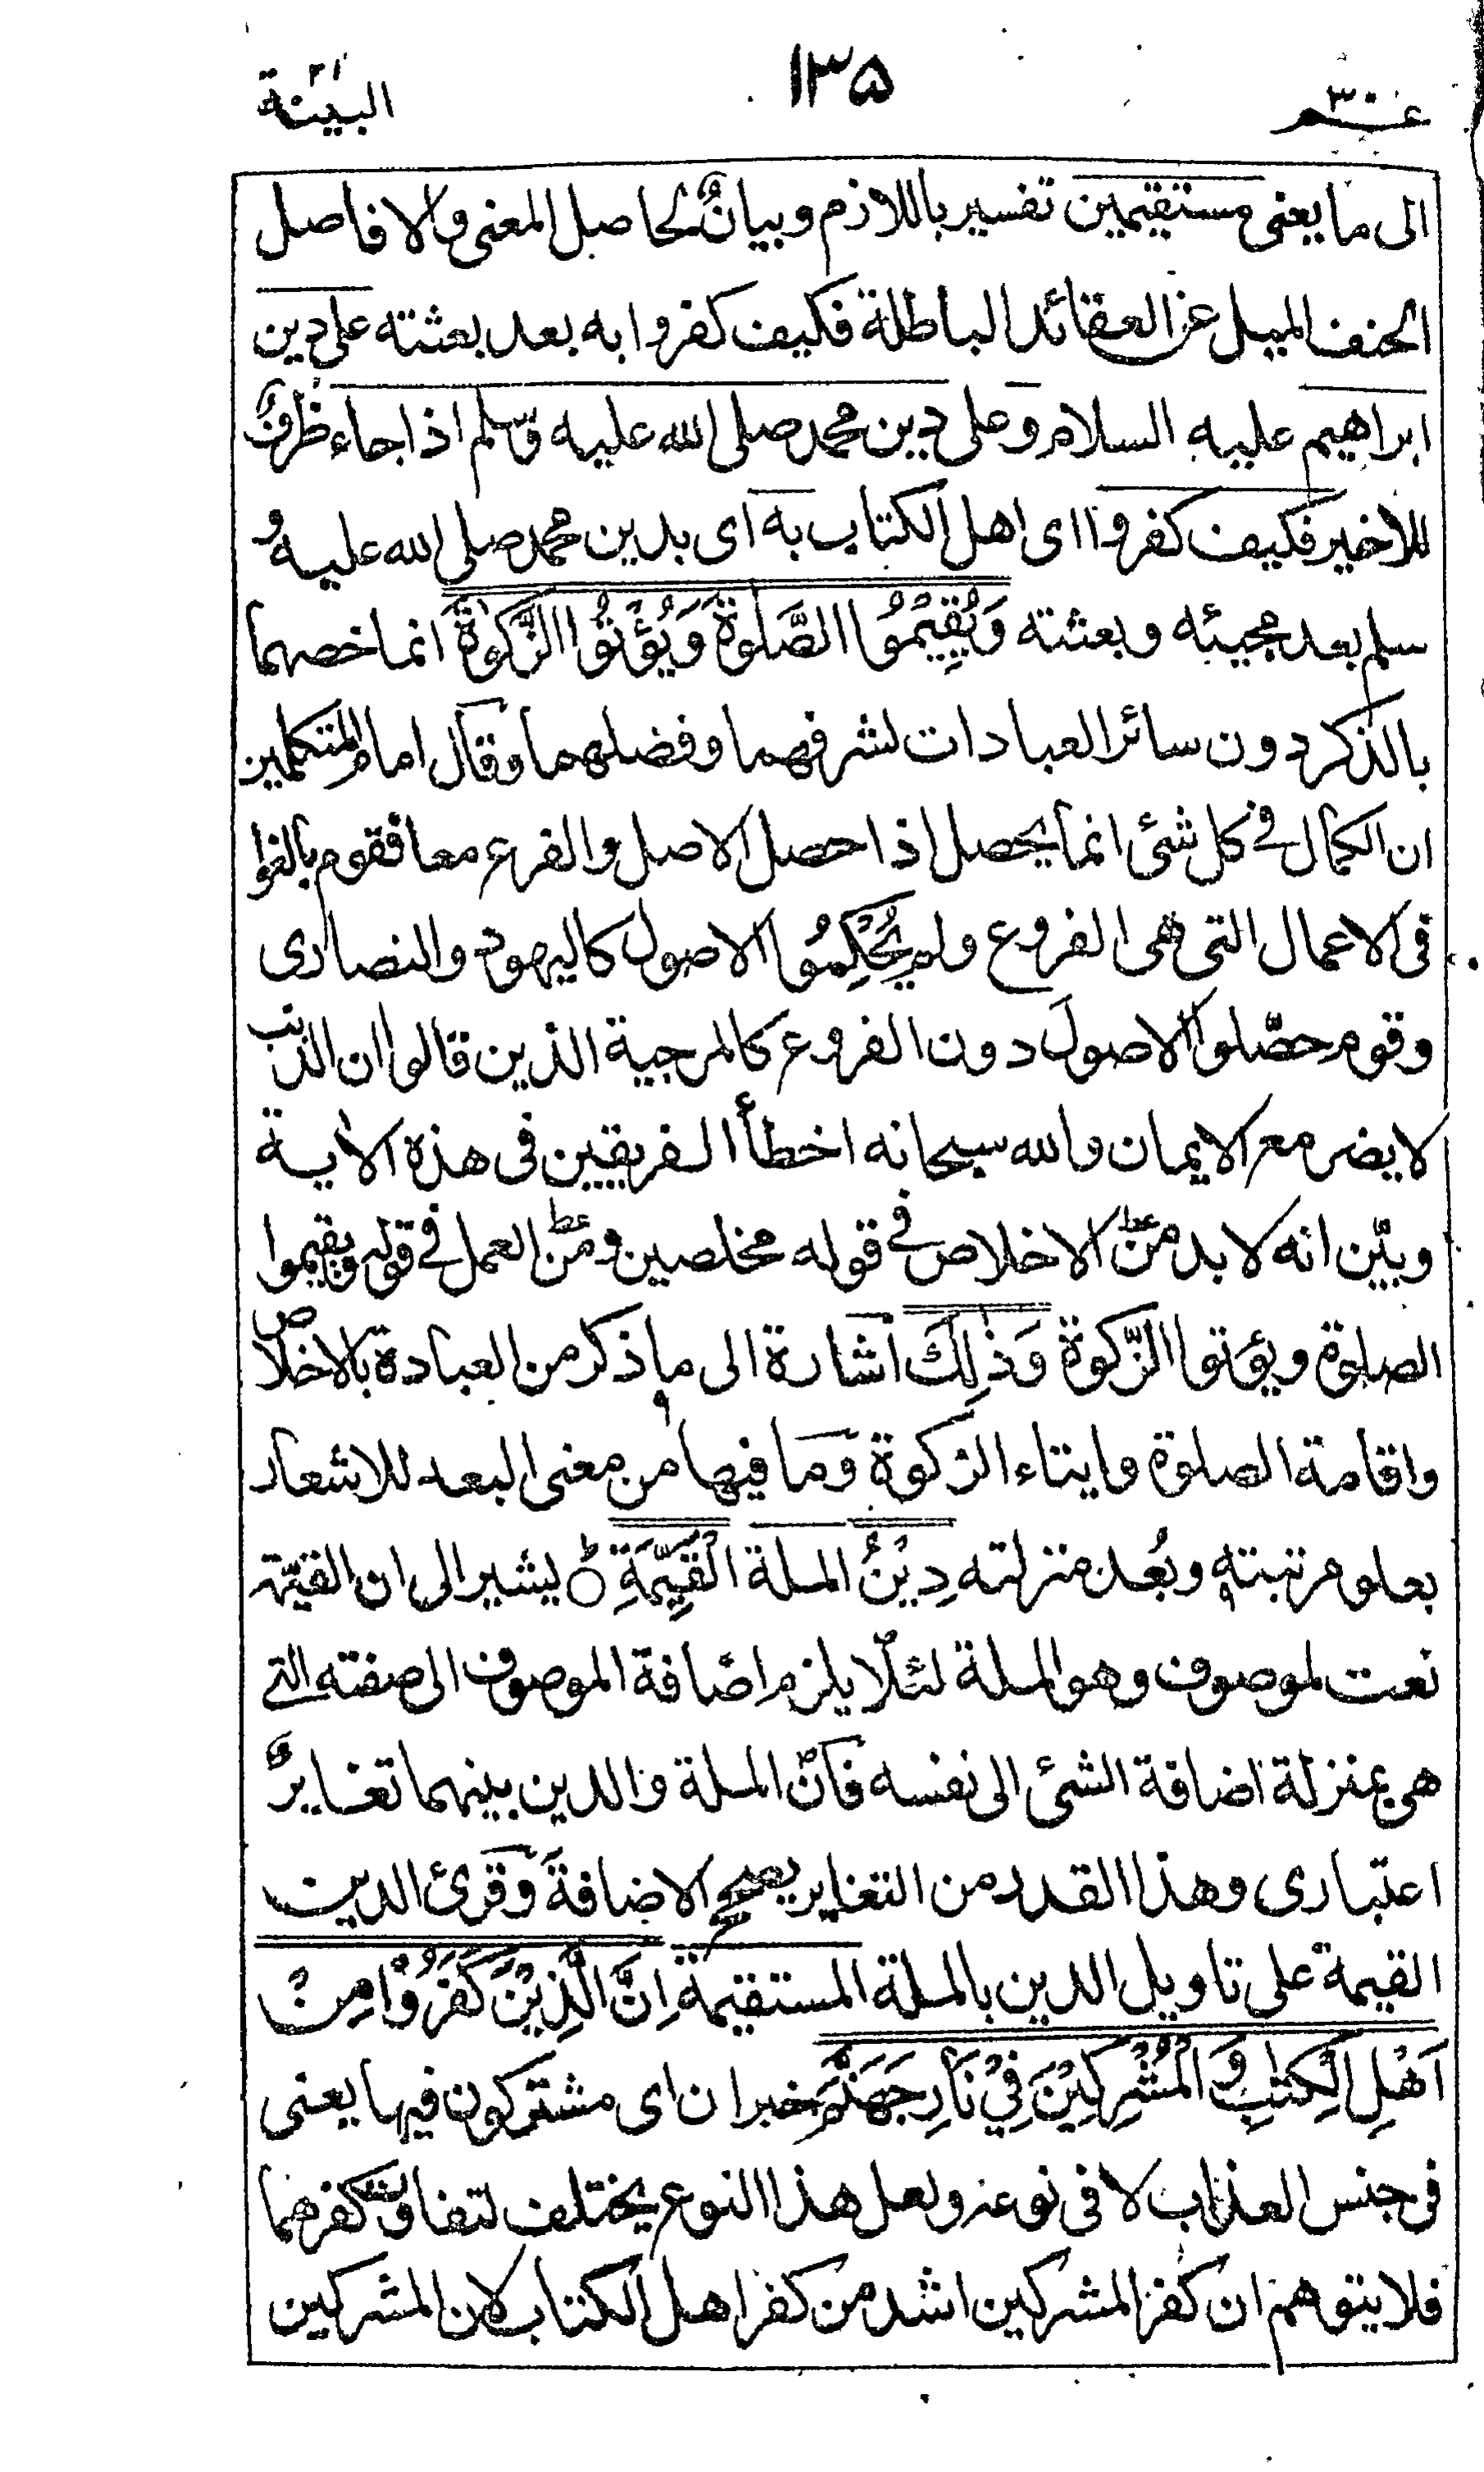 عم ٣٠
١٣٥
البينة
الى ما يعنى مستقيمين تفسير باللازم وبيانٌ لحاصل المعنى والا فاصل
الحنف الميل عن العقائد الباطلة فكيف كفروا به بعد بعثته على دين
ابراهيم عليه السلام وعلى دين محمد صلى الله عليه وسلم اذا جاء ظرفٌ
للاخير فكيف كفروا اى اهل الكتاب به اى بدين محمد صلى الله عليه و
سلم بعد مجيئه وبعثته وَيُقِيْمُوا الصَّلٰوةَ وَيُؤْتُوا الزَّكٰوةَ انما خصهما
بالذكر دون سائر العبادات لشرفهما وفضلهما وقال امام المتكلمين
ان الكمال فى كل شئ انما يحصل اذا حصل الاصل والفرع معا فقوم بالغوا
فى الاعمال التى هى الفروع ولم يُحْكِمُوا الاصول كاليهود والنصارى
وقوم حصّلوا الاصولَ دون الفروع كالمرجية الذين قالوا ان الذنب
لا يضر مع الايمان والله سبحانه اخطأ الفريقين فى هذه الاٰية
وبيّن انه لا بد من الاخلاص فى قوله مخلصين ومن العمل فى قوله ويقيموا
الصلوة ويؤتوا الزّكوة وَذٰلِكَ اشارة الى ما ذكر من العبادة بالاخلاص
واقامة الصلوة وايتاء الزكوة وما فيها من معنى البعد للاشعار
بعلو مرتبته وبُعد منزلته دِيْنُ الملة الْقَيِّمَةِ ۝ يشير الى ان القيّمة
نعت لموصوف وهو الملة لئلا يلزم اضافة الموصوف الى صفته التى
هى بمنزلة اضافة الشئ الى نفسه فانّ الملة والدين بينهما تغايرٌ
اعتبارى وهذا القدر من التغاير يصحح الاضافة وقرئ الدين
القيمة على تاويل الدين بالملة المستقيمة اِنَّ الَّذِيْنَ كَفَرُوْا مِنْ
اَهْلِ الْكِتٰبِ وَ الْمُشْرِكِيْنَ فِيْ نَارِ جَهَنَّمَ خبر ان اى مشتركون فيها يعنى
فى جنس العذاب لا فى نوعه ولعل هذا النوع يختلف لتفاوت كفرهما
فلا يتوهم ان كفر المشركين اشد من كفر اهل الكتاب لان المشركين